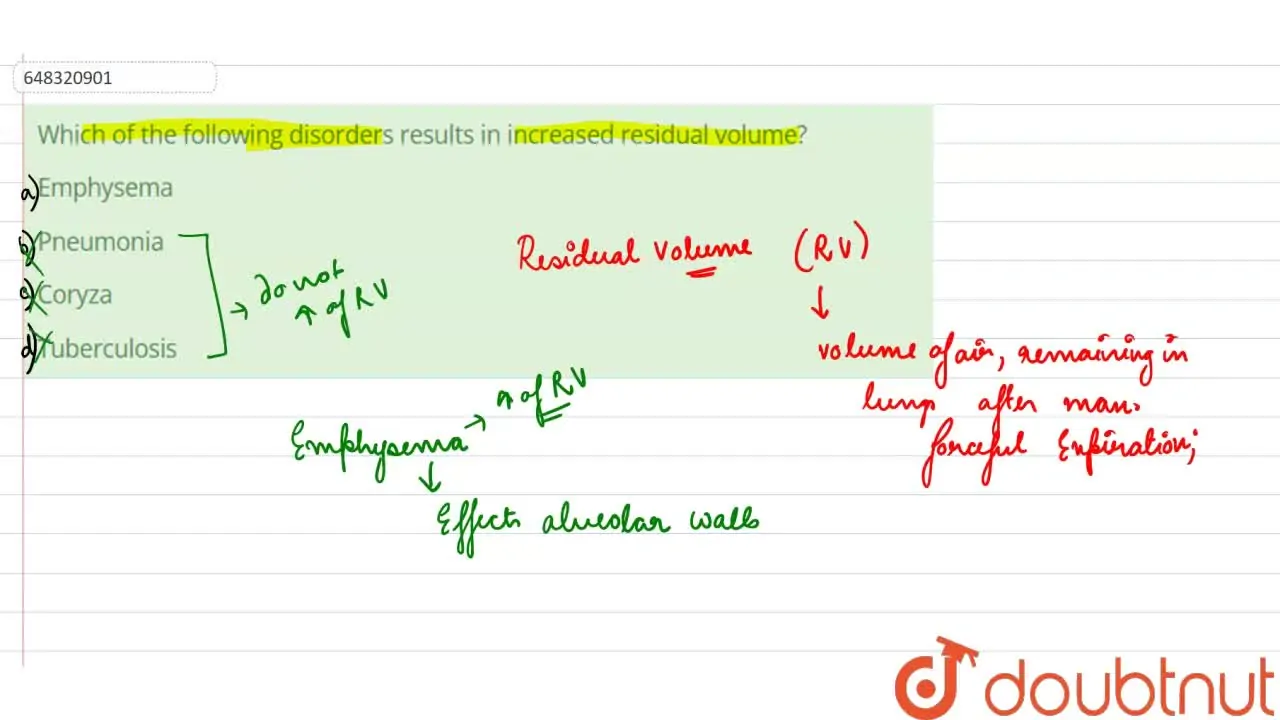 648320901
Which of the following disorders results in increased residual volume?
a) Emphysema
b) Pneumonia
c) Coryza
d) Tuberculosis
→ do not
↑ of RV
Residual volume (RV)
↓
volume of air, remaining in
lungs after max.
forceful Expiration;
Emphysema → ↑ of RV
↓
Effects alveolar walls
doubtnut